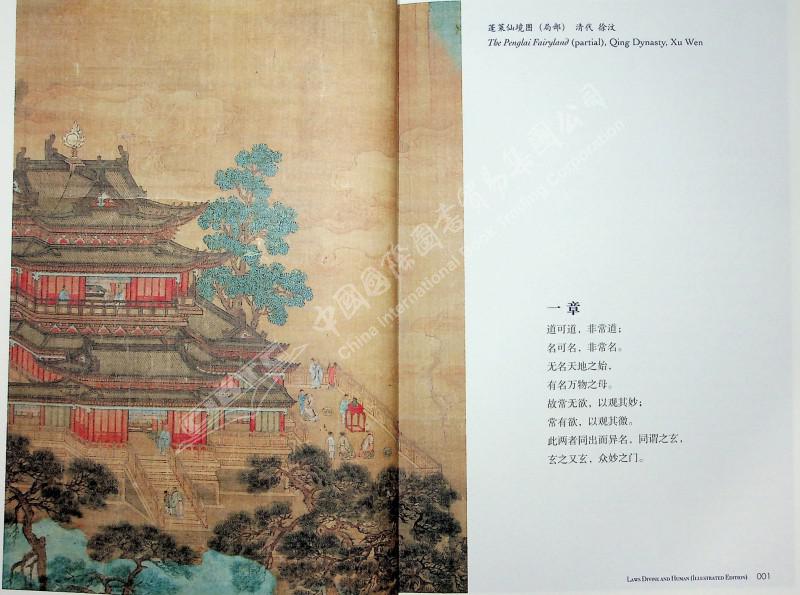 蓬莱仙境图（局部） 清代 徐汶
The Penglai Fairyland (partial), Qing Dynasty, Xu Wen
中國國際圖書貿易集團公司
China International Book Trading Corporation
一 章
道可道，非常道；
名可名，非常名。
无名天地之始，
有名万物之母。
故常无欲，以观其妙；
常有欲，以观其徼。
此两者同出而异名，同谓之玄，
玄之又玄，众妙之门。
LAWS DIVINE AND HUMAN (ILLUSTRATED EDITION) 001